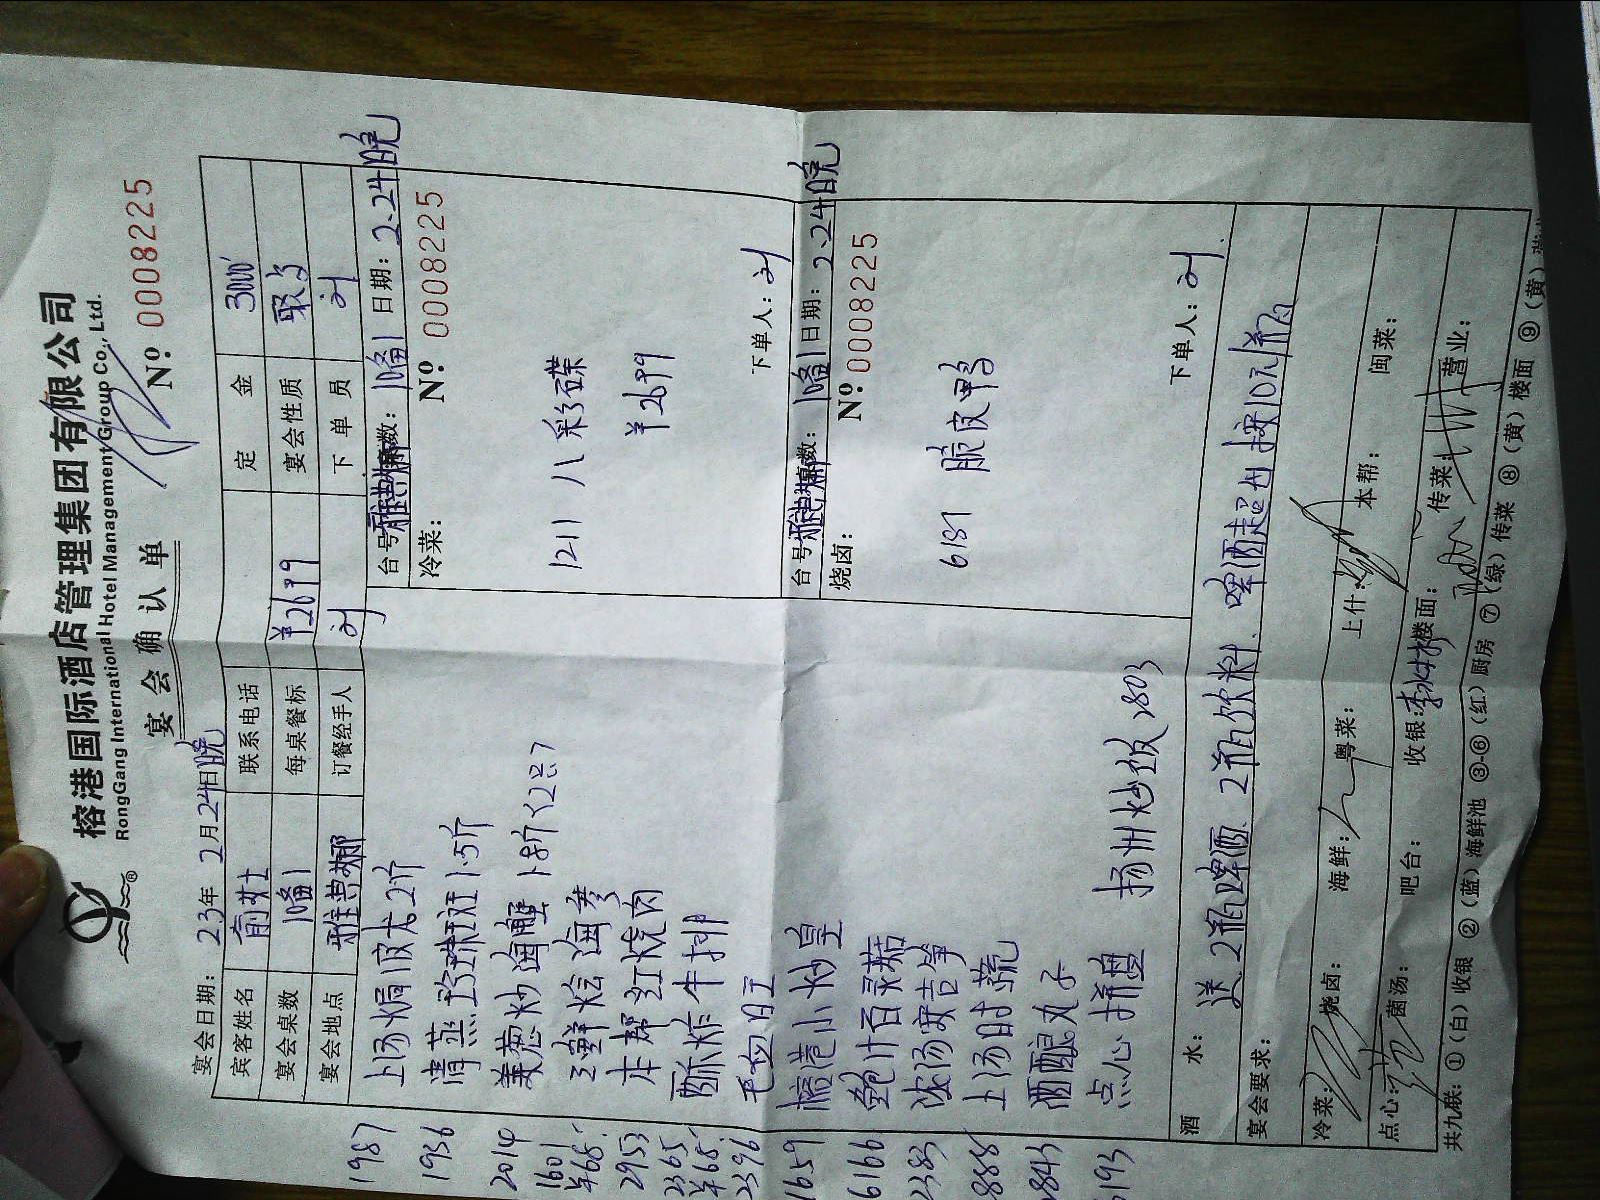 榕港国际酒店管理集团有限公司
RongGang International Hotel Management Group Co., Ltd.
宴会确认单
Nº: 0008225
宴会日期: 23年 2月24日晚
宾客姓名 俞女士 联系电话 定金 3000
宴会桌数 1备1 每桌餐标 ¥2699 宴会性质 聚会
宴会地点 雅典娜 订餐经手人 刘 下单员 刘
1987 上汤焗波龙2斤
1936 清蒸珍珠斑1.5斤
2014 姜葱炒海蟹1.8斤(2只)
1601 三鲜烩海参
¥68
2953 本帮红烧肉
2365 酥炸牛排
¥68
2396 毛血旺
1659 榕港小炒皇
6166 鲍汁百灵菇
2383 浓汤安吉笋
8888 上汤时蔬
2843 酒酿丸子
6193 点心拼盘
扬州炒饭 2803
台号 雅典娜 桌数: 1备1 日期: 2.24晚
冷菜: Nº 0008225
1211 八彩碟
¥2699
下单人: 刘
台号 雅典娜 桌数: 1备1 日期: 2.24晚
烧卤: Nº 0008225
6187 脆皮鸭
下单人: 刘
酒水: 送2瓶啤酒 2瓶饮料. 啤酒超出按10元/瓶
宴会要求:
冷菜: 烧卤: 海鲜: 粤菜: 上什: 本帮: 闽菜:
点心: 菌汤: 吧台: 收银: 楼面: 传菜: 营业:
共九联: ①(白)收银 ②(蓝)海鲜池 ③-⑥(红)厨房 ⑦(绿)传菜 ⑧(黄)楼面 ⑨(黄)